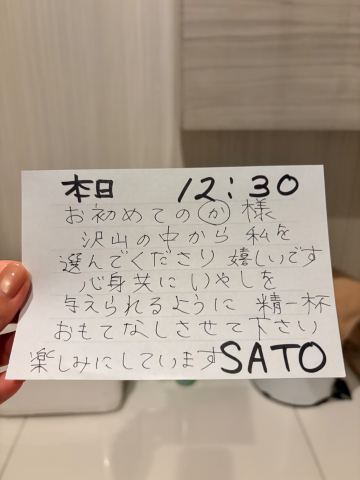 本日 12:30
お初めての か 様
沢山の中から 私を
選んでくださり 嬉しいです
心身共にいやしを
与えられるように 精一杯
おもてなしさせて下さい
楽しみにしています SATO